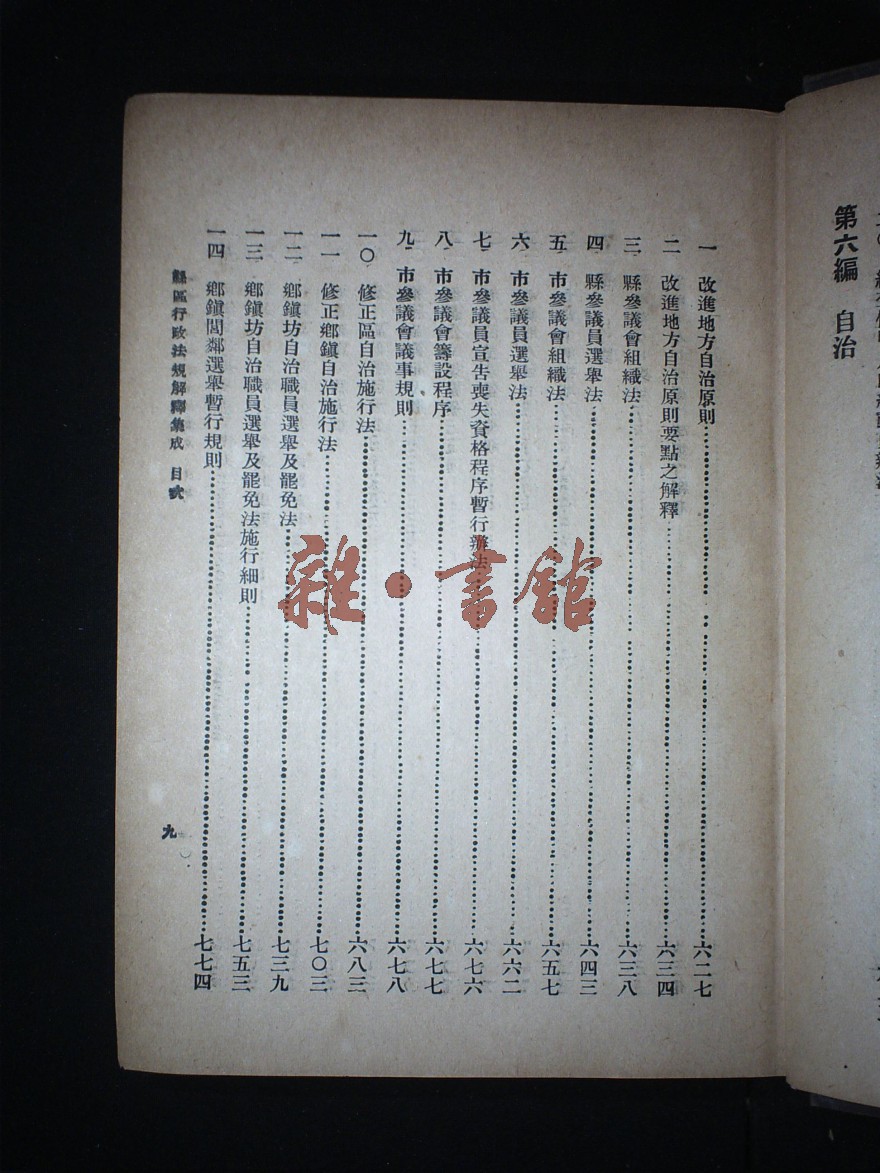 第六編　自治
一　改進地方自治原則……六二七
二　改進地方自治原則要點之解釋……六三四
三　縣參議會組織法……六三八
四　縣參議員選舉法……六四三
五　市參議會組織法……六五七
六　市參議員選舉法……六六二
七　市參議員宣告喪失資格程序暫行辦法……六七六
八　市參議會籌設程序……六七七
九　市參議會議事規則……六七八
一〇　修正區自治施行法……六八三
一一　修正鄉鎮自治施行法……七〇三
一二　鄉鎮坊自治職員選舉及罷免法……七三九
一三　鄉鎮坊自治職員選舉及罷免法施行細則……七五三
一四　鄉鎮閭鄰選舉暫行規則……七七四
縣區行政法規解釋集成　目次
九
雜·書館